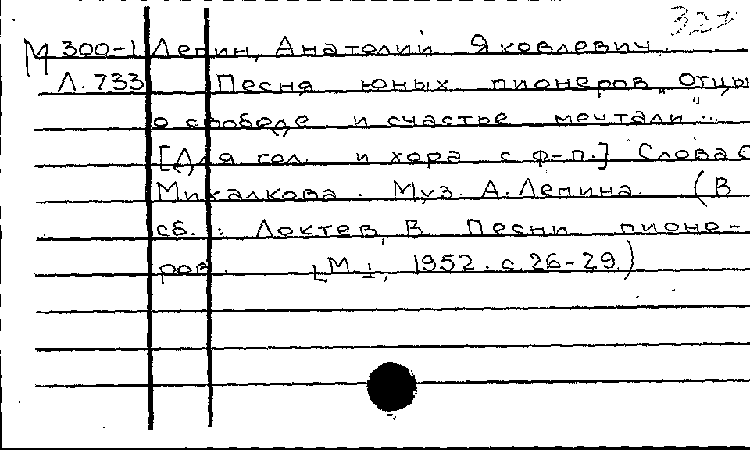 327
М 300-1 Лепин, Анатолий Яковлевич.
Л. 733 Песня юных пионеров „Отцы
о свободе и счастье мечтали..."
[Для гол. и хора с ф-п.] Слова С
Михалкова. Муз. А. Лепина. (В
сб.: Локтев, В. Песни пионе-
ров. [М.], 1952. с. 26-29.)